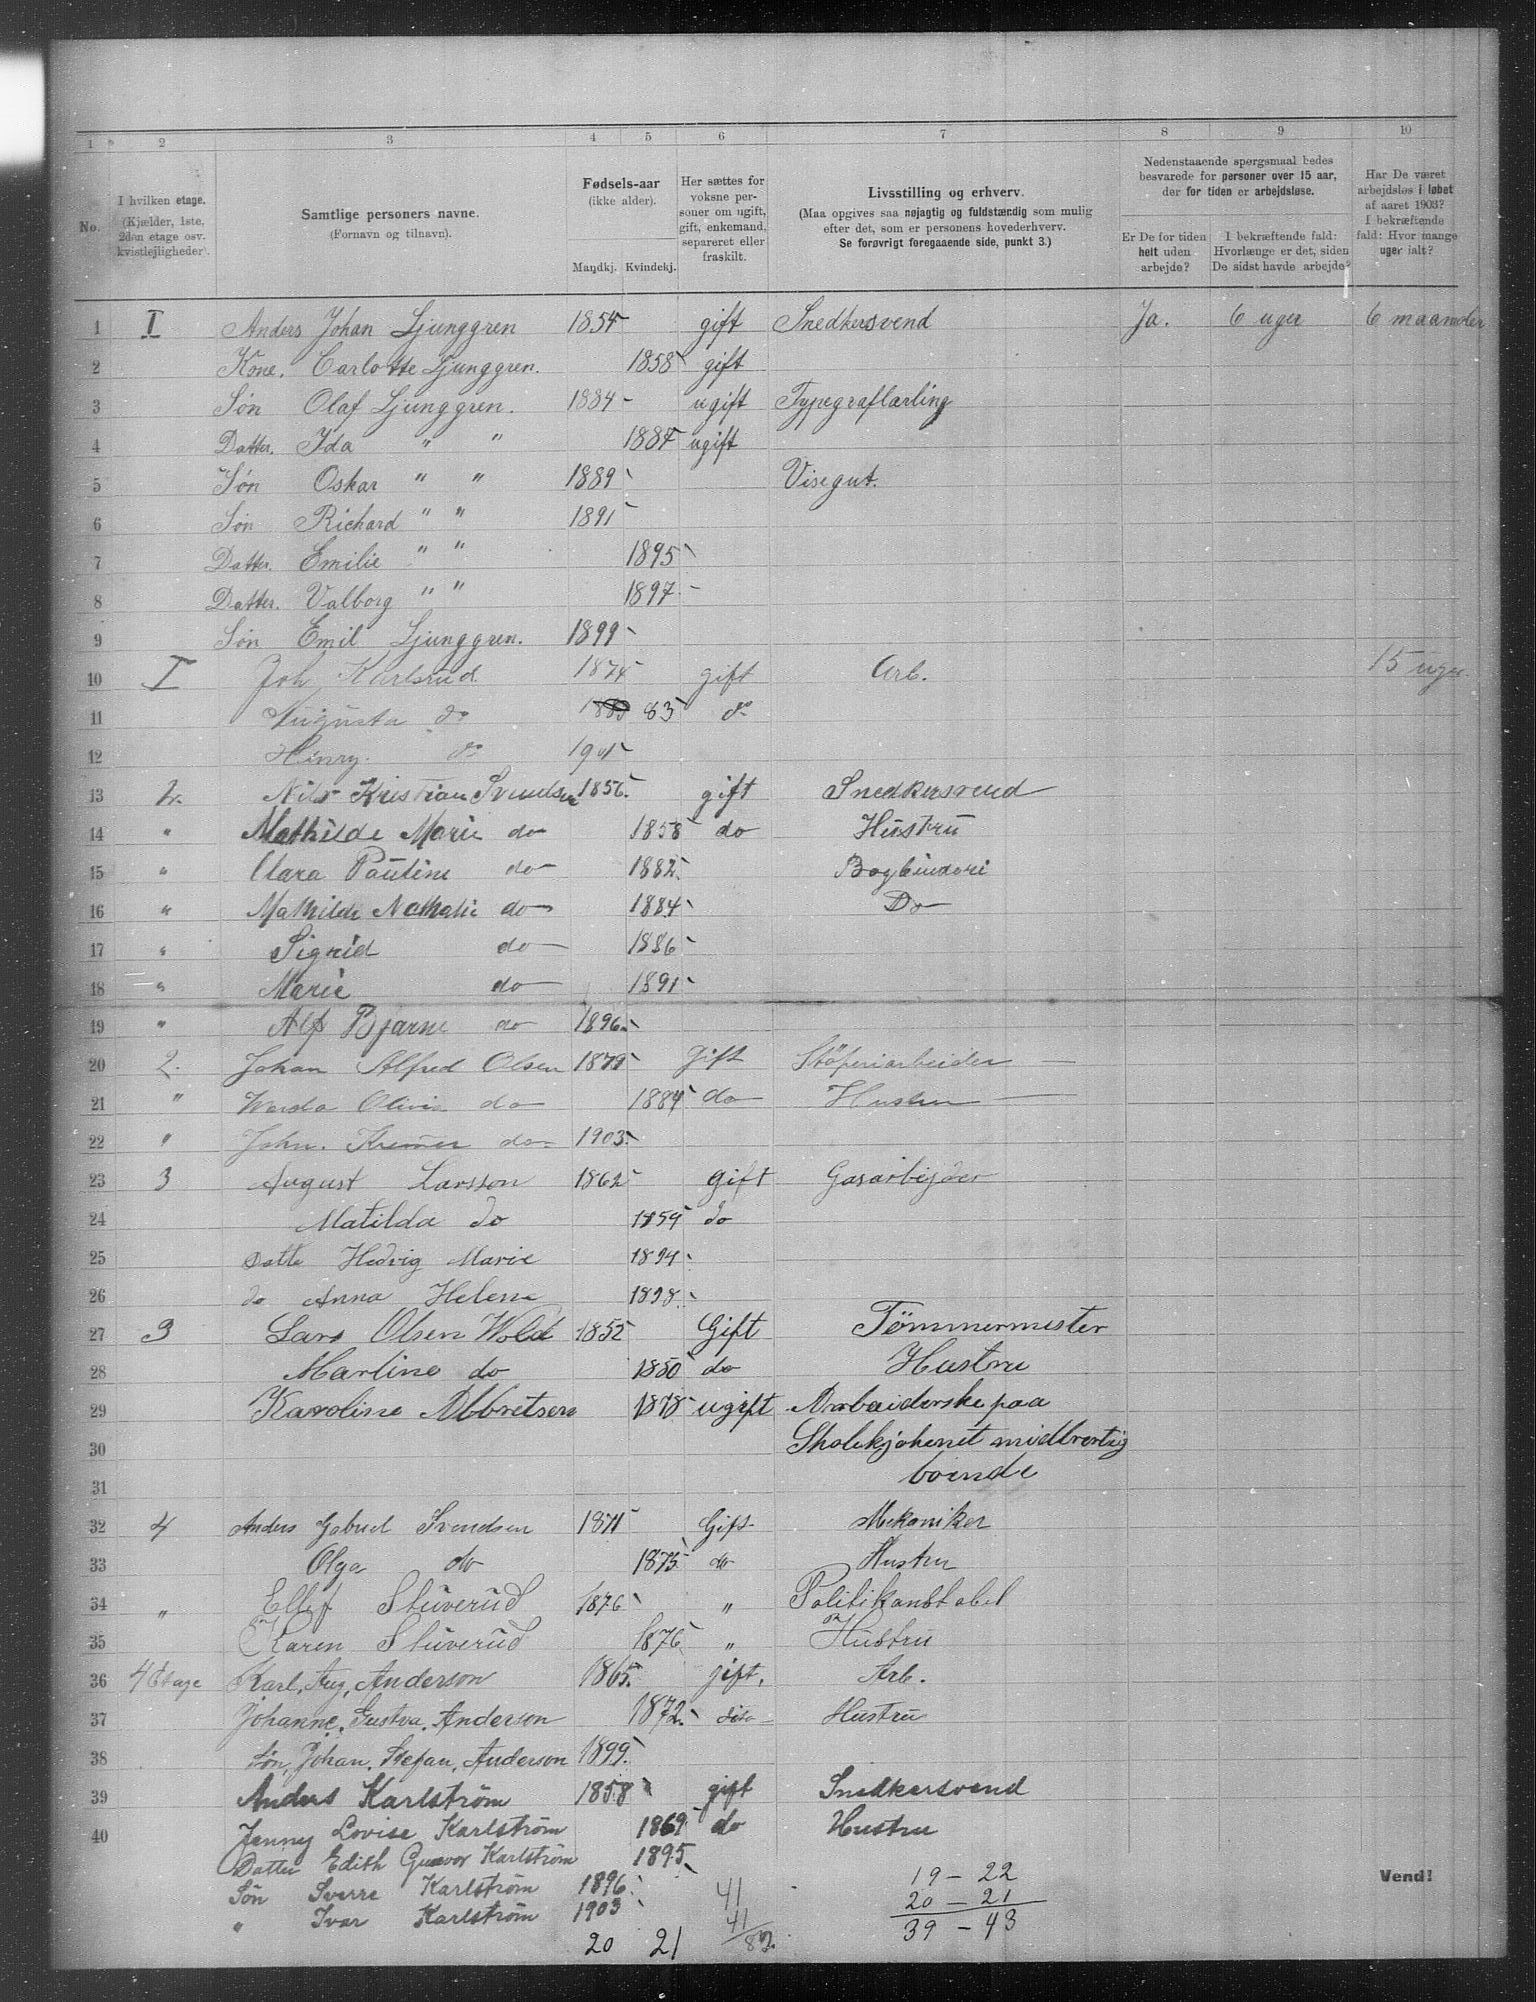 1 2 3 4 5 6 7 8 9 10
No.
I hvilken etage. (Kjælder, 1ste, 2den etage osv. kvistlejligheder).
Samtlige personers navne.
(Fornavn og tilnavn).
Fødsels-aar
(ikke alder).
Mandkj. Kvindekj.
Her sættes for voksne personer om ugift, gift, enkemand, separeret eller fraskilt.
Livsstilling og erhverv.
(Maa opgives saa nøjagtig og fuldstændig som mulig
efter det, som er personens hovederhverv.
Se forøvrigt foregaaende side, punkt 3.)
Nedenstaaende spørgsmaal bedes
besvarede for personer over 15 aar,
der for tiden er arbejdsløse.
Er De for tiden helt uden arbejde?
I bekræftende fald: Hvorlænge er det, siden De sidst havde arbejde?
Har De været arbejdsløs i løbet af aaret 1903? I bekræftende fald: Hvor mange uger ialt?
1 I Anders Johan Ljunggren 1854 gift Snedkersvend Ja. 6 uger 6 maaneder
2 Kone. Carlotte Ljunggren. 1858 gift
3 Søn Olaf Ljunggren. 1884 ugift Typegraflærling
4 Datter. Ida " " 1887 ugift
5 Søn Oskar " " 1889 Visegut.
6 Søn Richard " " 1891
7 Datter. Emilie " " 1895
8 Datter. Valborg " " 1897
9 Søn Emil Ljunggren. 1899
10 I Joh. Karlsrud 1874 gift Arb. 15 uger
11 Augusta do 83 do
12 Hinry. do 1901
13 2. Nils Kristian Svendsen 1856. gift Snedkersvend
14 " Mathilde Marie do 1858 do Hustru
15 " Clara Pauline do 1882. Bogbinderi
16 " Mathilde Nathalie do 1884 Do
17 " Sigrid do 1886
18 " Marie do 1891
19 " Alf Bjarne do 1896
20 2. Johan Alfred Olsen 1879 Gift Støberiarbeider
21 " Olivia do 1884 do Hustru
22 " John. do 1903.
23 3 August Larsson 1862 gift Gasarbejder
24 Matilda do 1859 do
25 Datte Hedvig Marie 1894
26 do Anna Helene 1898
27 3 Lars Olsen Wold 1852 Gift Tömmermester
28 Martine do 1850 do Hustru
29 Karoline Albretsen 1878 ugift Arbeiderske paa
30 Skolekjøkenet midlertig
31 boende
32 4 Anders Gabriel Svendsen 1871 Gift Mekaniker
33 Olga do 1875 do Hustru
34 " Ellef Stuverud 1876 " Politikonstabel
35 Karen Stuverud 1876 " Hustru
36 4 Etage Karl. Aug. Anderson 1865. gift. Arb.
37 Johanne. Gustva. Anderson 1872. dito Hustru
38 Søn, Johan. Stefan. Anderson 1899.
39 Anders Karlström 1858 gift Snedkersvend
40 Jenny Lovise Karlström 1869 do Hustru
Datter Edith Gunvor Karlström 1895
Søn Sverre Karlström 1896 41 19 - 22
" Ivar Karlström 1903 41 20 - 21
20 21 82. 39 - 43
Vend!